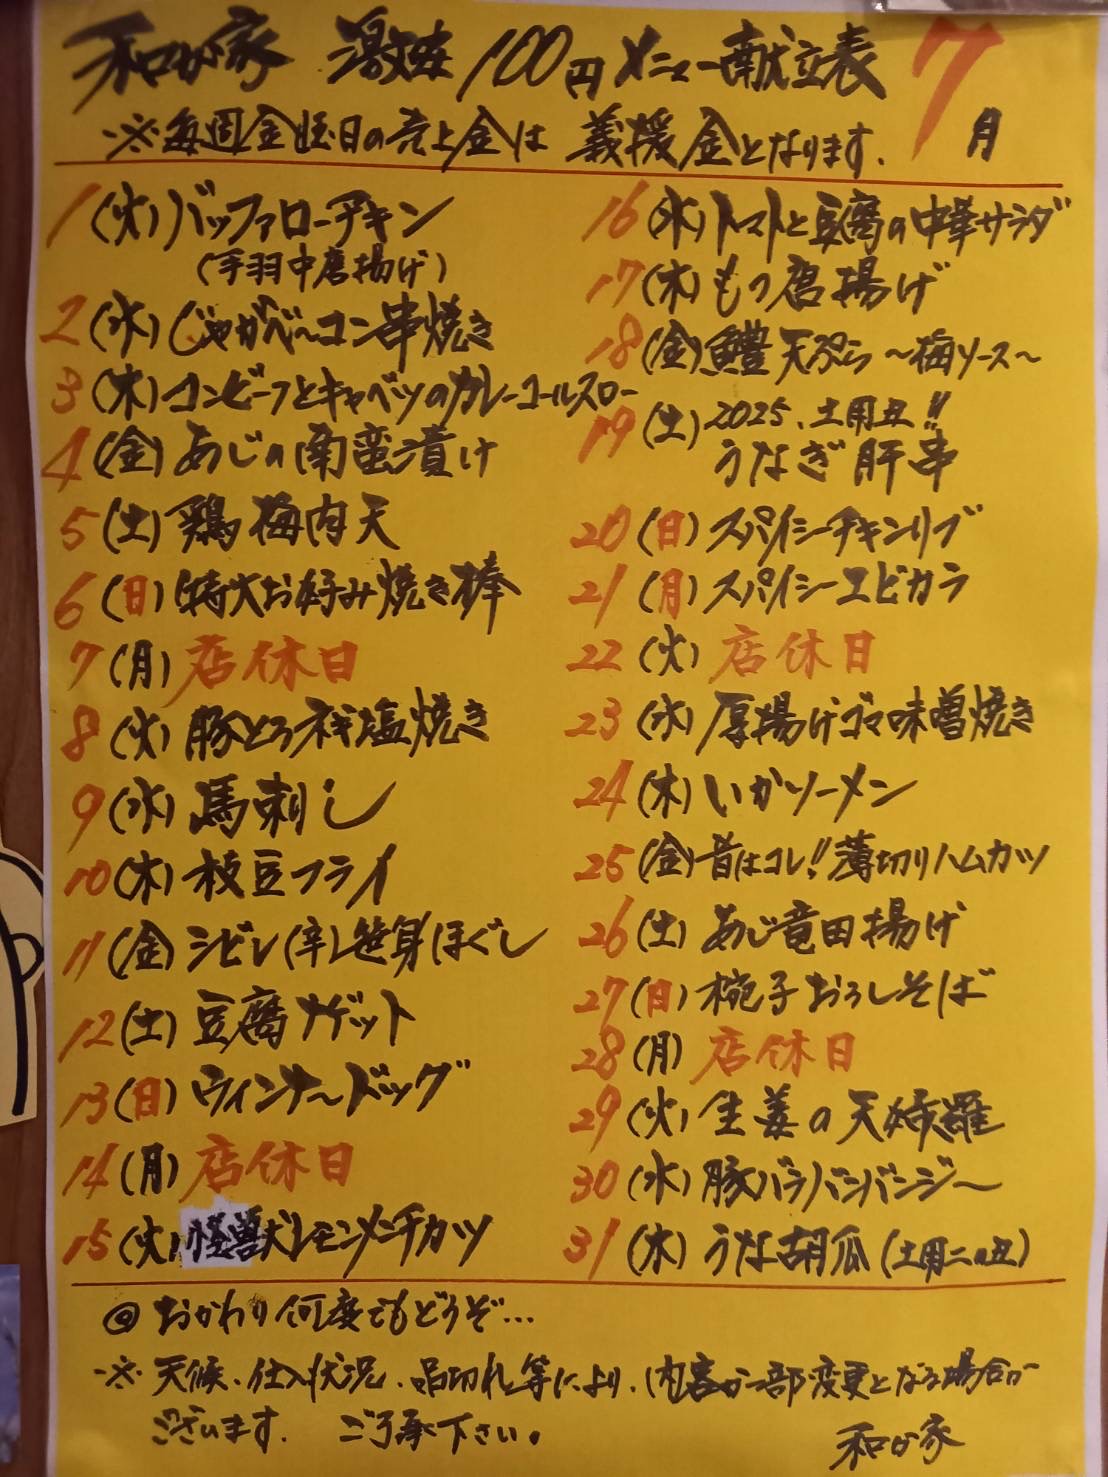 和が家 激安100円メニュー献立表 7月
※毎週金曜日の売上金は 義援金となります.
1 (火) バッファローチキン
(手羽中唐揚げ)
2 (水) じゃがベ〜コン串焼き
3 (木) コンビーフとキャベツのカレーコールスロー
4 (金) あじの南蛮漬け
5 (土) 鶏梅肉天
6 (日) 特大お好み焼き棒
7 (月) 店休日
8 (火) 豚とろネギ塩焼き
9 (水) 馬刺し
10 (木) 枝豆フライ
11 (金) シビレ(辛)笹身ほぐし
12 (土) 豆腐ナゲット
13 (日) ウィンナ〜ドッグ
14 (月) 店休日
15 (火) 怪獣犬レモンメンチカツ
16 (水) トマトと豆腐の中華サラダ
17 (木) もつ唐揚げ
18 (金) 鱧天ぷら 〜梅ソース〜
19 (土) 2025、土用丑!!
うなぎ肝串
20 (日) スパイシーチキンリブ
21 (月) スパイシーエビカラ
22 (火) 店休日
23 (水) 厚揚げゴマ味噌焼き
24 (木) いかソーメン
25 (金) 昔はコレ!! 薄切りハムカツ
26 (土) あじ竜田揚げ
27 (日) 椀子おろしそば
28 (月) 店休日
29 (火) 生姜の天婦羅
30 (水) 豚バラバンバンジ〜
31 (木) うな胡瓜 (土用二の丑)
◎ おかわり何度でもどうぞ…
※ 天候、仕入状況、品切れ等により、内容が一部変更となる場合が
ございます. ご了承下さい。
和が家